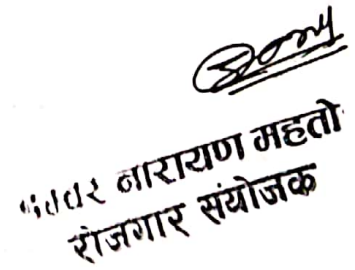 नारायण महतो
रोजगार संयोजक